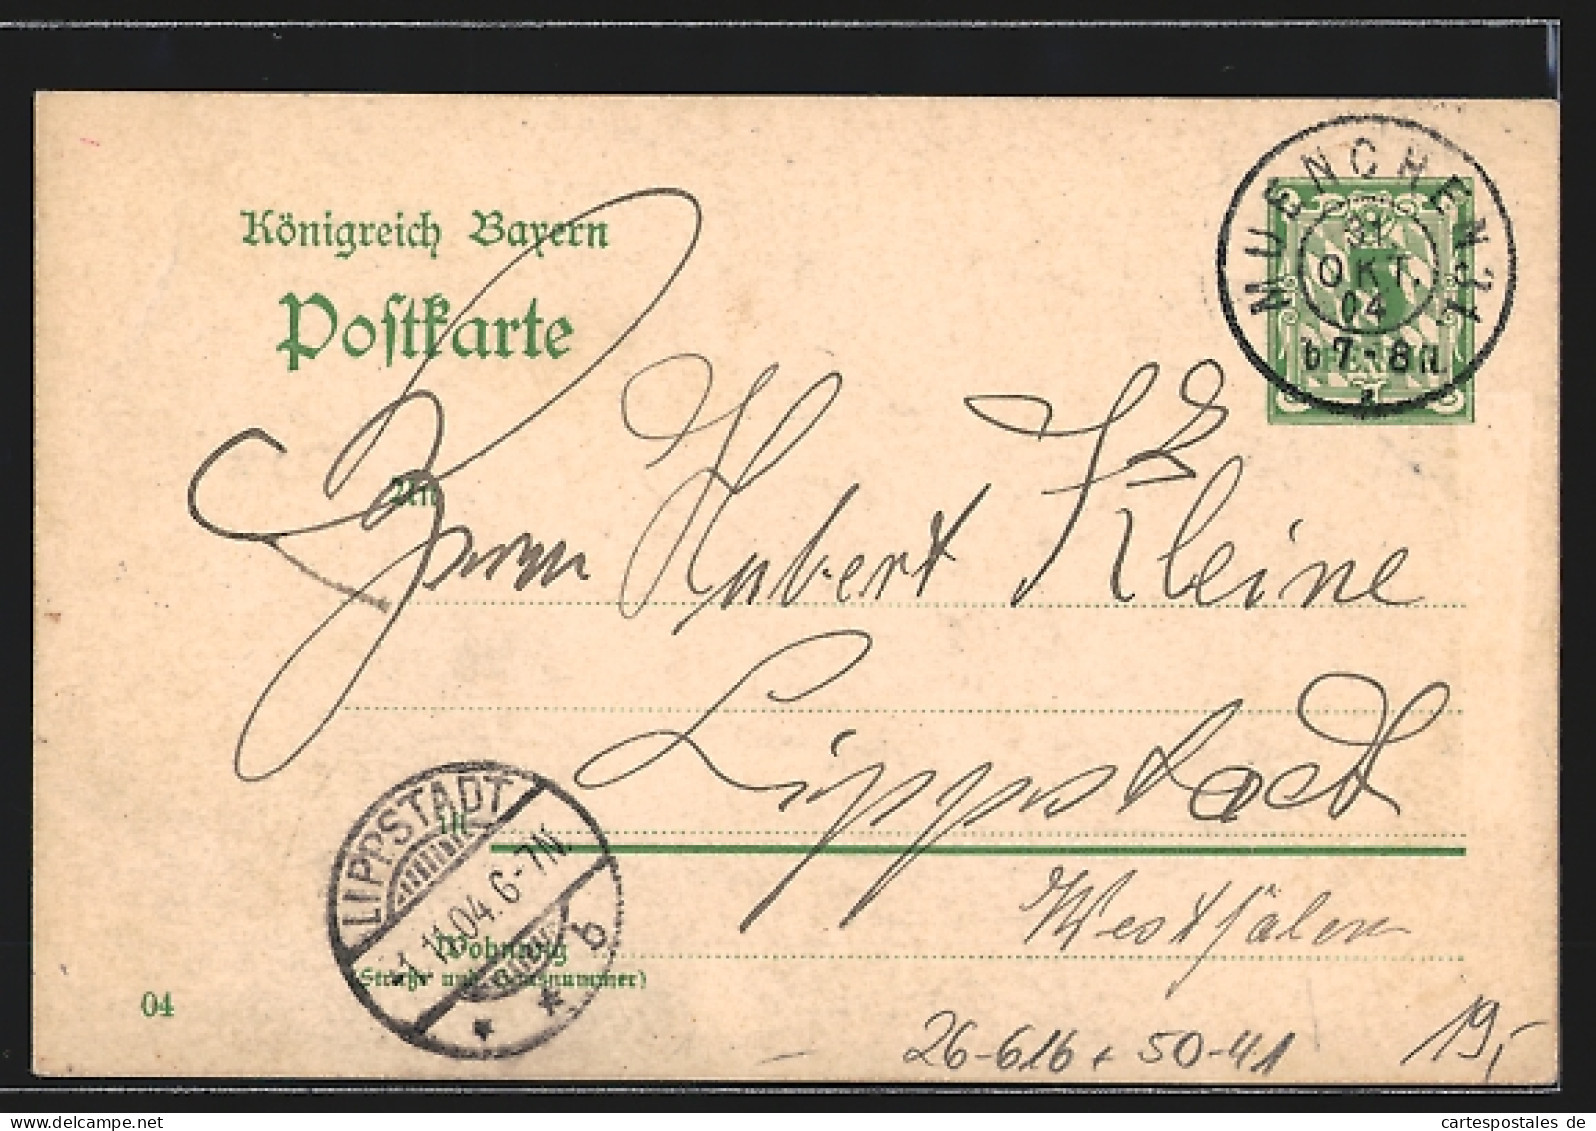 Königreich Bayern
Postkarte
MUENCHEN
31
OKT.
04
b 7-8 N.
An
Herrn Hubert Kleine
Lippstadt
in
Westfalen
LIPPSTADT
1.11.04. 6-7N.
b
* *
Wohnung
(Straße und Hausnummer)
04
26-616 + 50-41
19,-
cartespostales de